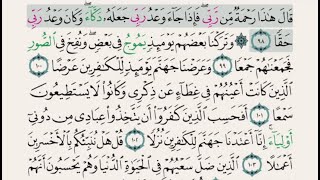 قَالَ هَٰذَا رَحْمَةٌ مِّن رَّبِّي ۖ فَإِذَا جَاءَ وَعْدُ رَبِّي جَعَلَهُ دَكَّاءَ ۖ وَكَانَ وَعْدُ رَبِّي
حَقًّا ٩٨ وَتَرَكْنَا بَعْضَهُمْ يَوْمَئِذٍ يَمُوجُ فِي بَعْضٍ ۖ وَنُفِخَ فِي الصُّورِ
فَجَمَعْنَاهُمْ جَمْعًا ٩٩ وَعَرَضْنَا جَهَنَّمَ يَوْمَئِذٍ لِّلْكَافِرِينَ عَرْضًا ١٠٠
الَّذِينَ كَانَتْ أَعْيُنُهُمْ فِي غِطَاءٍ عَن ذِكْرِي وَكَانُوا لَا يَسْتَطِيعُونَ
سَمْعًا ١٠١ أَفَحَسِبَ الَّذِينَ كَفَرُوا أَن يَتَّخِذُوا عِبَادِي مِن دُونِي
أَوْلِيَاءَ ۚ إِنَّا أَعْتَدْنَا جَهَنَّمَ لِلْكَافِرِينَ نُزُلًا ١٠٢ قُلْ هَلْ نُنَبِّئُكُم بِالْأَخْسَرِينَ
أَعْمَالًا ١٠٣ الَّذِينَ ضَلَّ سَعْيُهُمْ فِي الْحَيَاةِ الدُّنْيَا وَهُمْ يَحْسَبُونَ أَنَّهُمْ